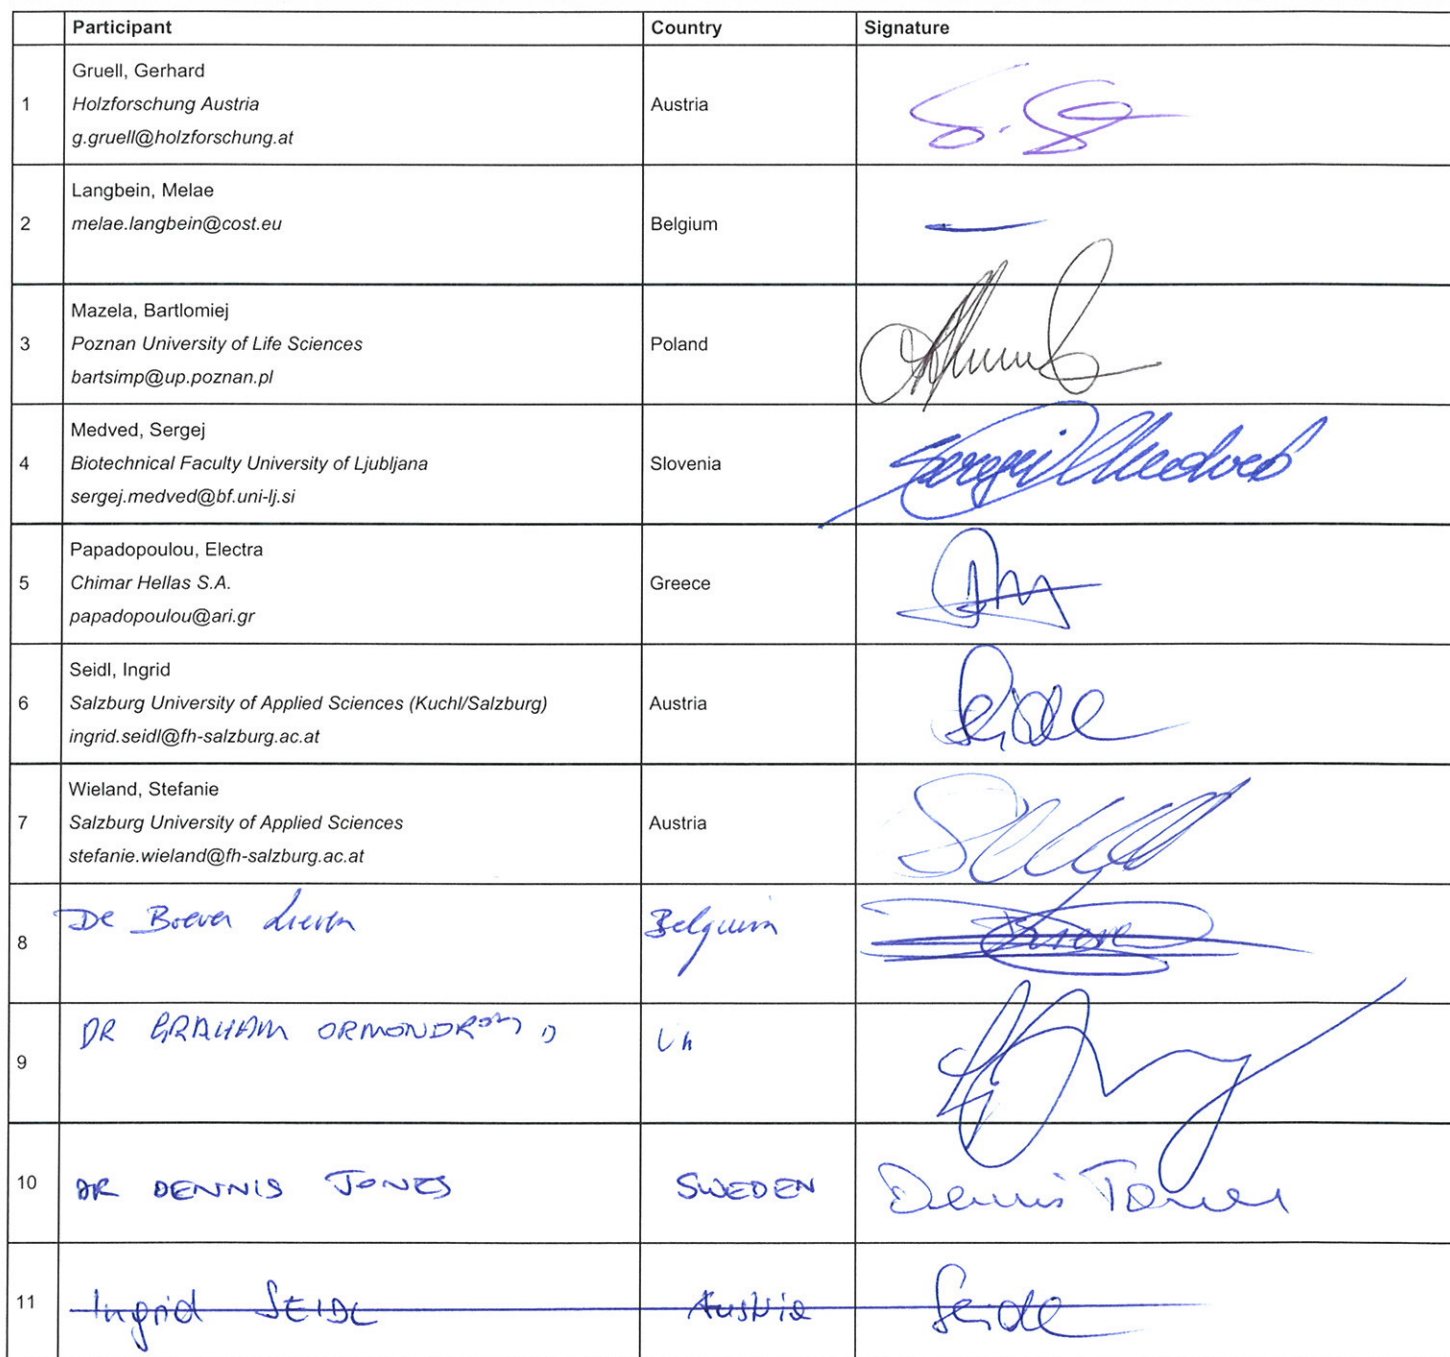 Participant Country Signature
1
Gruell, Gerhard
Holzforschung Austria
g.gruell@holzforschung.at
Austria
2
Langbein, Melae
melae.langbein@cost.eu
Belgium
3
Mazela, Bartlomiej
Poznan University of Life Sciences
bartsimp@up.poznan.pl
Poland
4
Medved, Sergej
Biotechnical Faculty University of Ljubljana
sergej.medved@bf.uni-lj.si
Slovenia
Sergej Medved
5
Papadopoulou, Electra
Chimar Hellas S.A.
papadopoulou@ari.gr
Greece
6
Seidl, Ingrid
Salzburg University of Applied Sciences (Kuchl/Salzburg)
ingrid.seidl@fh-salzburg.ac.at
Austria
Seidl
7
Wieland, Stefanie
Salzburg University of Applied Sciences
stefanie.wieland@fh-salzburg.ac.at
Austria
8
De Boever Lieven
Belguim
9
DR GRAHAM ORMONDROYD
Uk
10
DR DENNIS JONES
SWEDEN
Dennis Jones
11
Ingrid SEIDL
Austria
Seidl